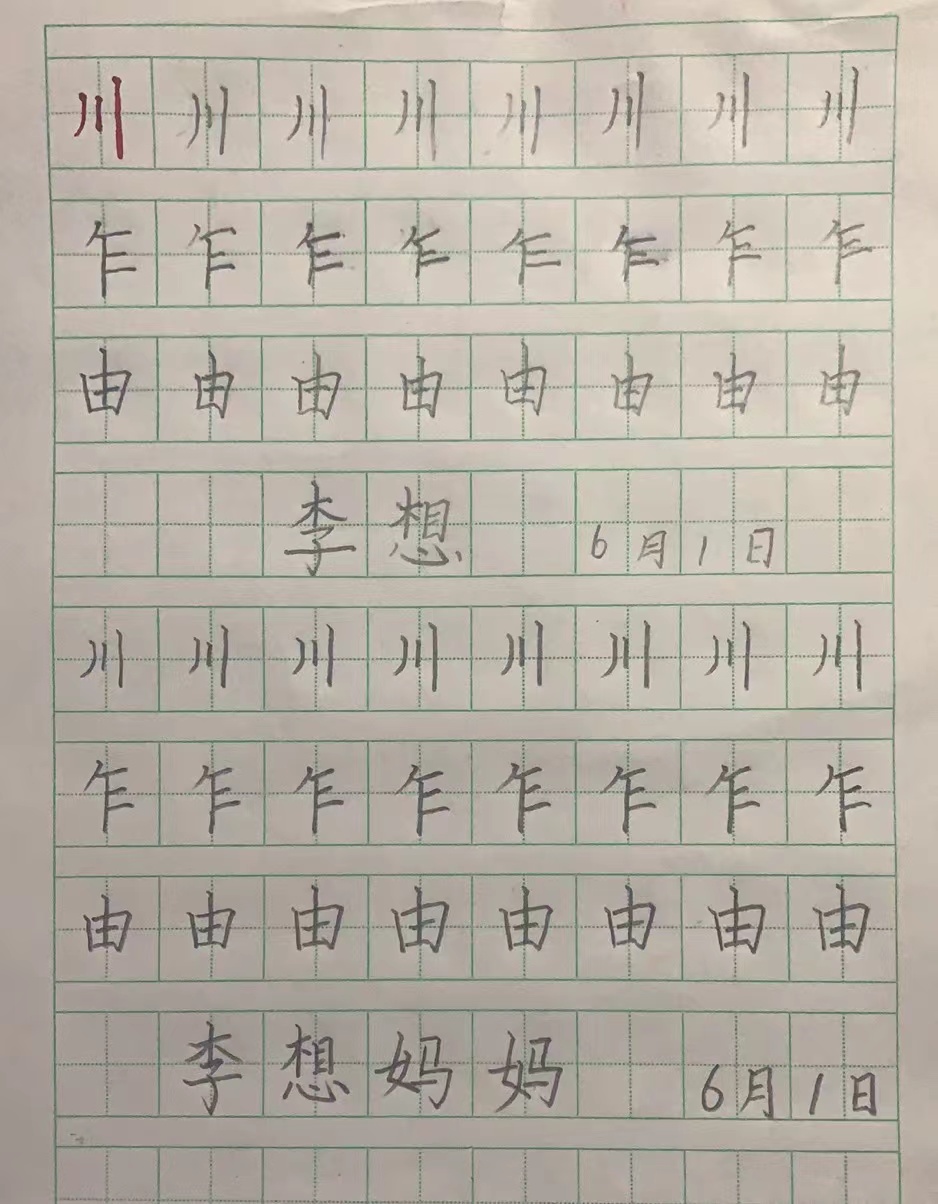 川川川川川川川川
乍乍乍乍乍乍乍乍
由由由由由由由由
李想 6月1日
川川川川川川川川
乍乍乍乍乍乍乍乍
由由由由由由由由
李想妈妈 6月1日